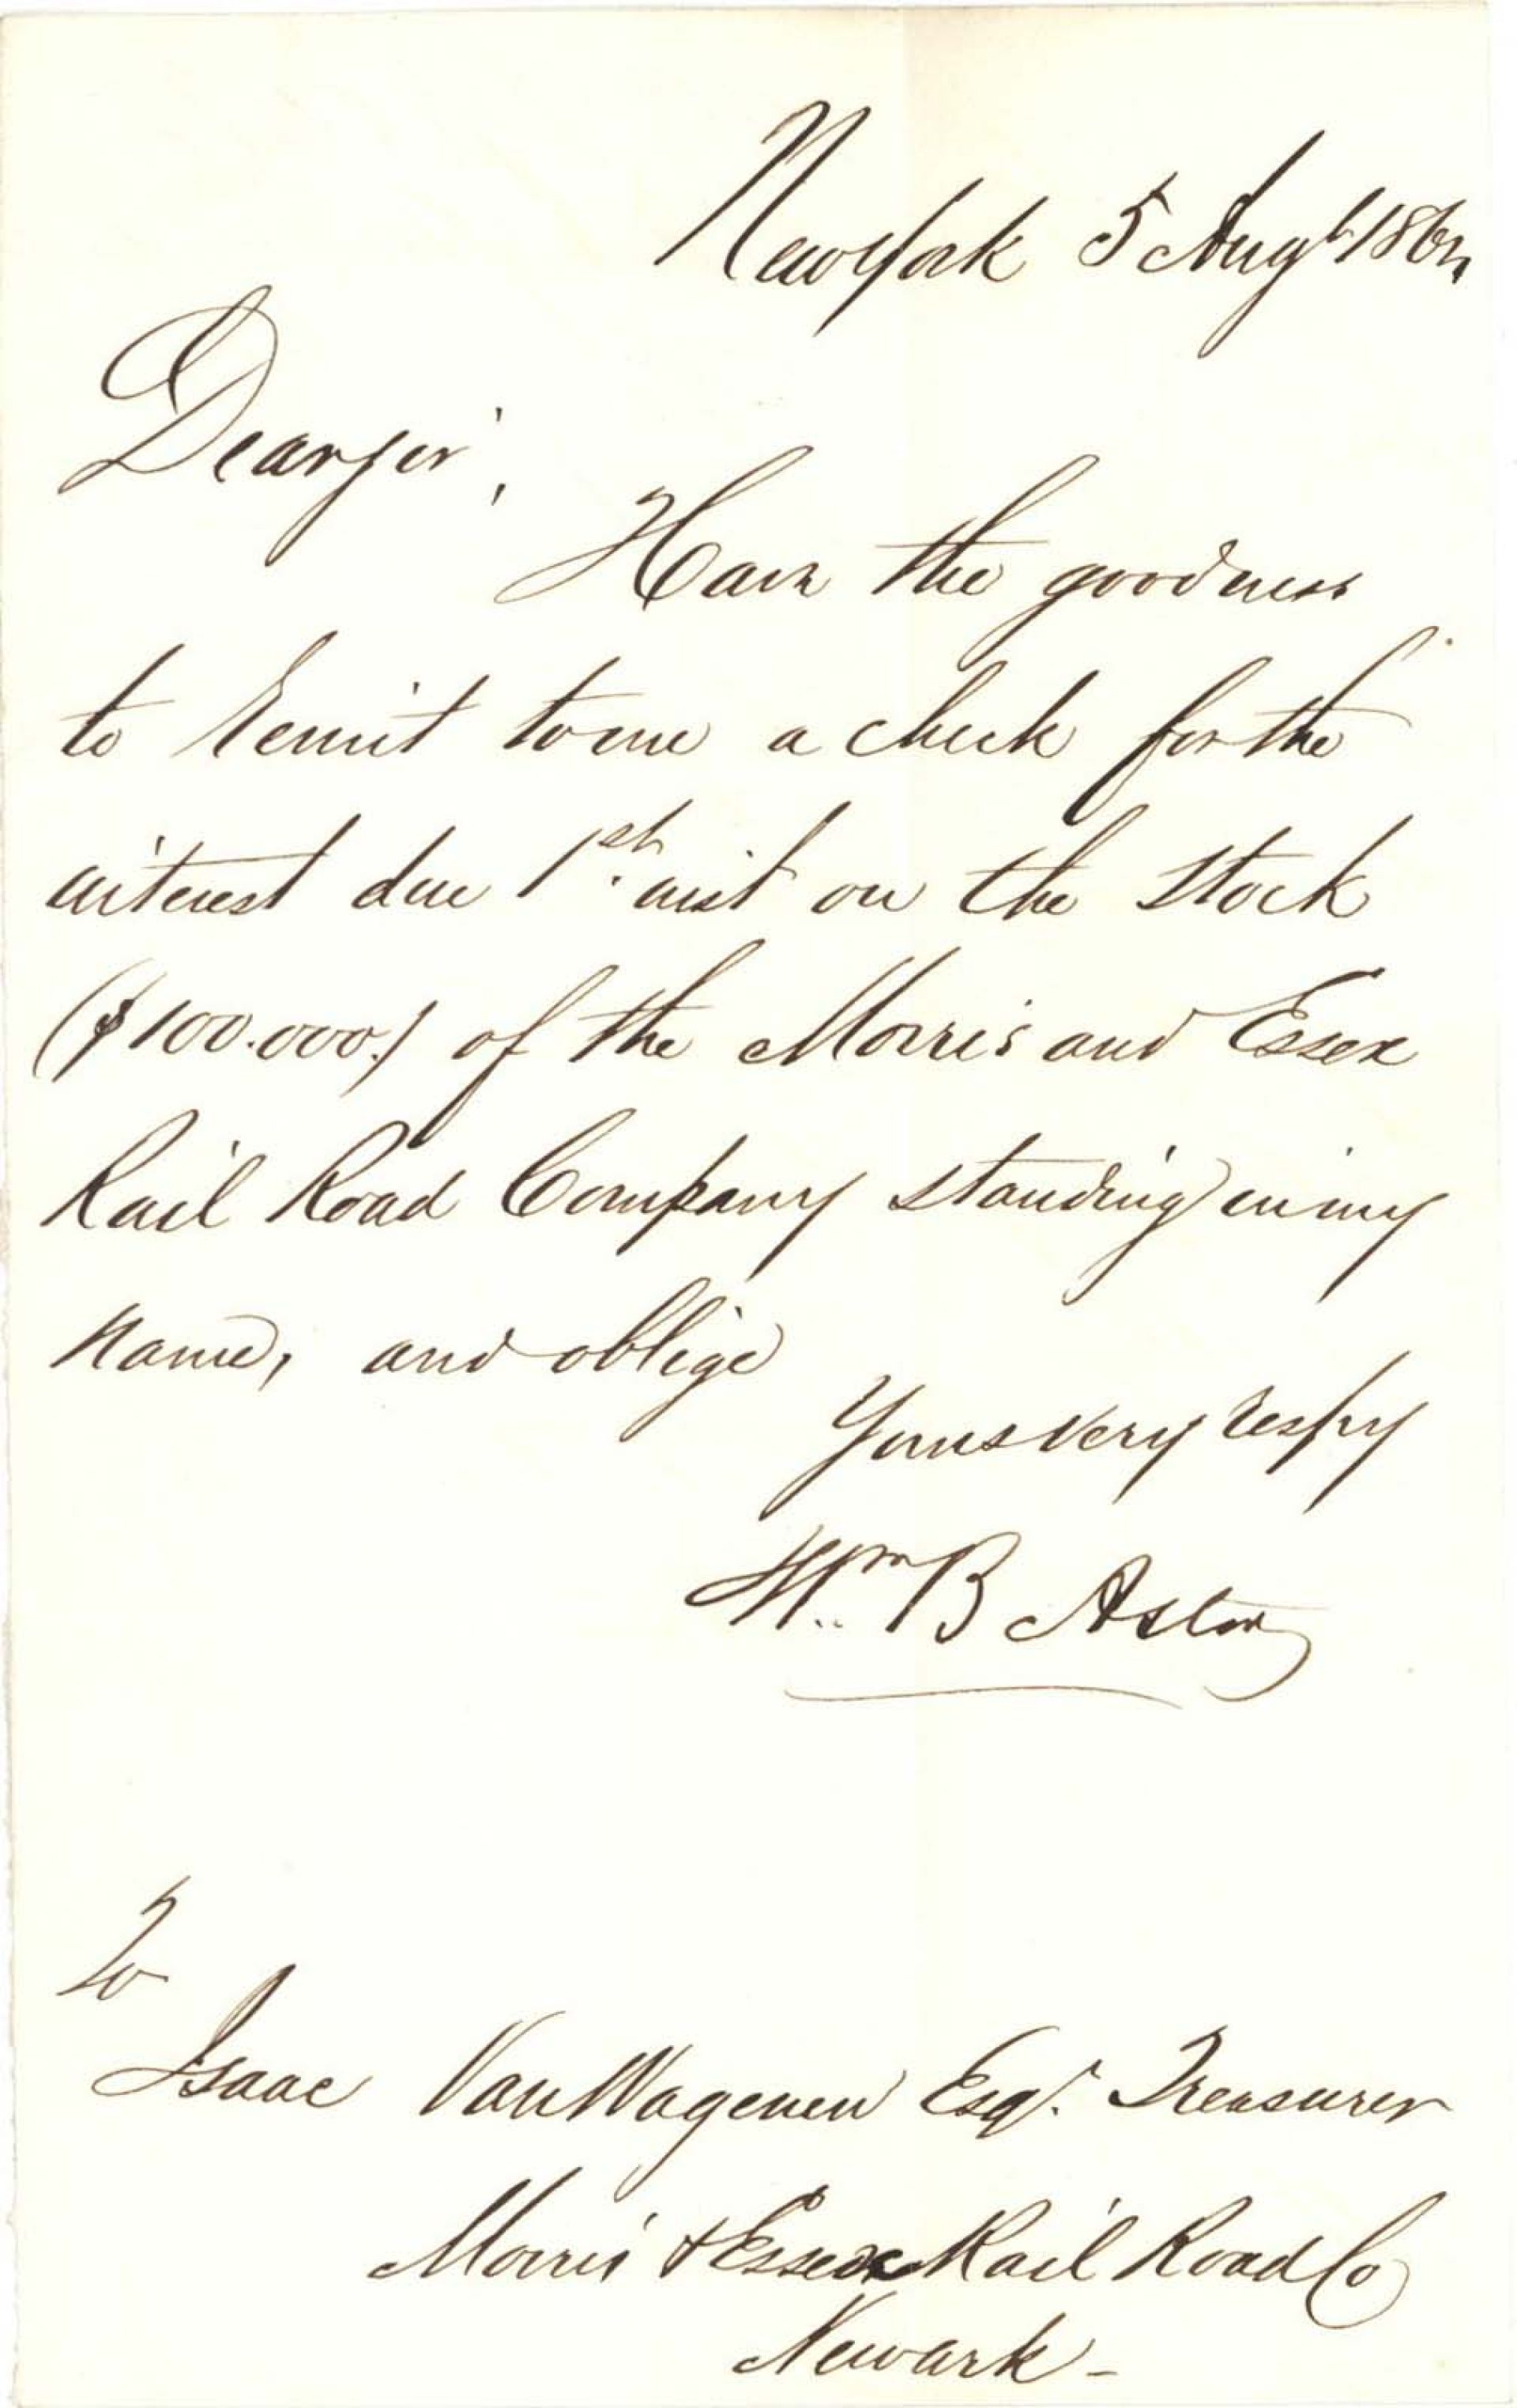 New York 5 Augt 186
Dear sir,
Have the goodness
to remit to me a check for the
interest due 1st inst on the stock
($100.000.) of the Morris and Essex
Rail Road Company standing in my
name, and oblige
Yours very respy
Wm B Astor
To
Isaac Van Wagenen Esqr. Treasurer
Morris & Essex Rail Road Co
Newark -